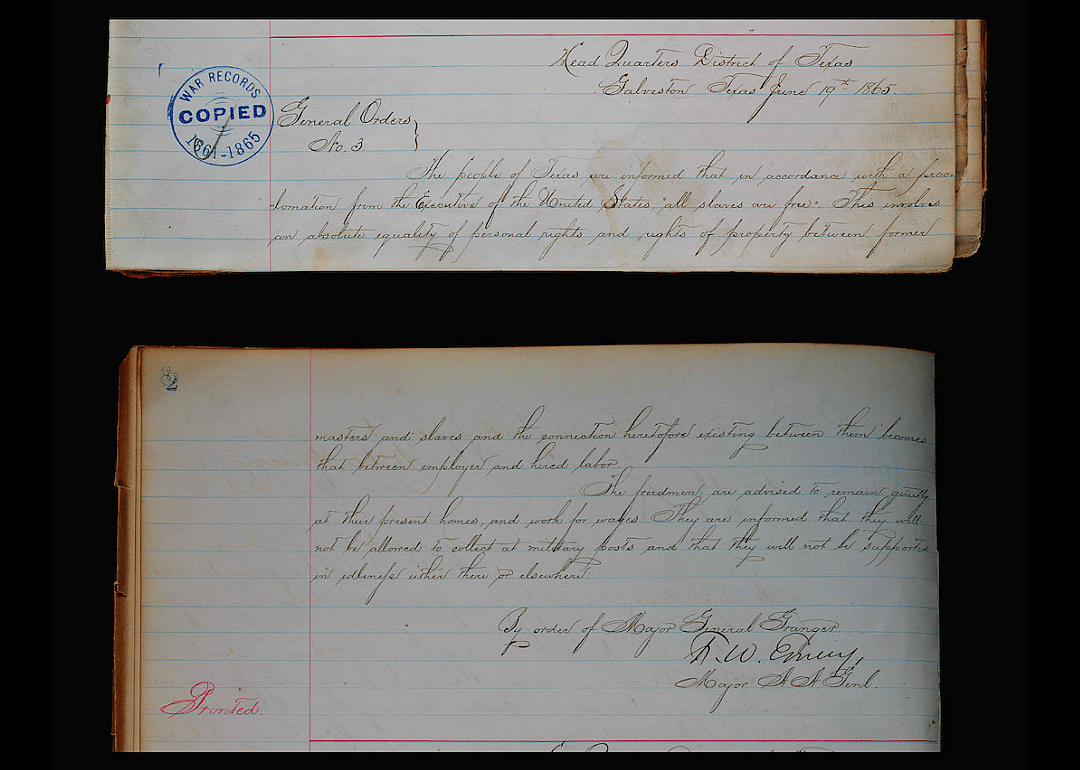 Head Quarters District of Texas
Galveston Texas June 19th 1865.
WAR RECORDS
COPIED
1861-1865
General Orders
No. 3.
The people of Texas are informed that in accordance with a proc-
lamation from the Executive of the United States, "all slaves are free". This involves
an absolute equality of personal rights and rights of property between former
masters and slaves and the connection heretofore existing between them becomes
that between employer and hired labor.
The freedmen are advised to remain quietly
at their present homes, and work for wages. They are informed that they will
not be allowed to collect at military posts and that they will not be supported
in idleness either there or elsewhere.
By order of Major General Granger
F. W. Emery,
Major A A Genl.
Printed.